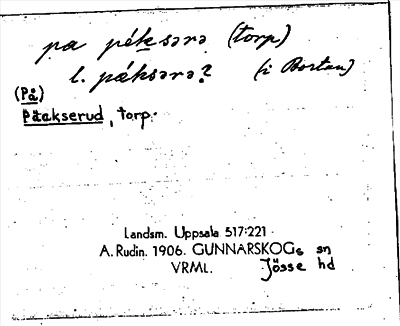 pa péksərə (torp)
l. pǽksərə? (i Bortan)
(På)
Päakserud, torp.
Landsm. Uppsala 517:221
A. Rudin. 1906. GUNNARSKOGs sn
VRML. Jösse hd